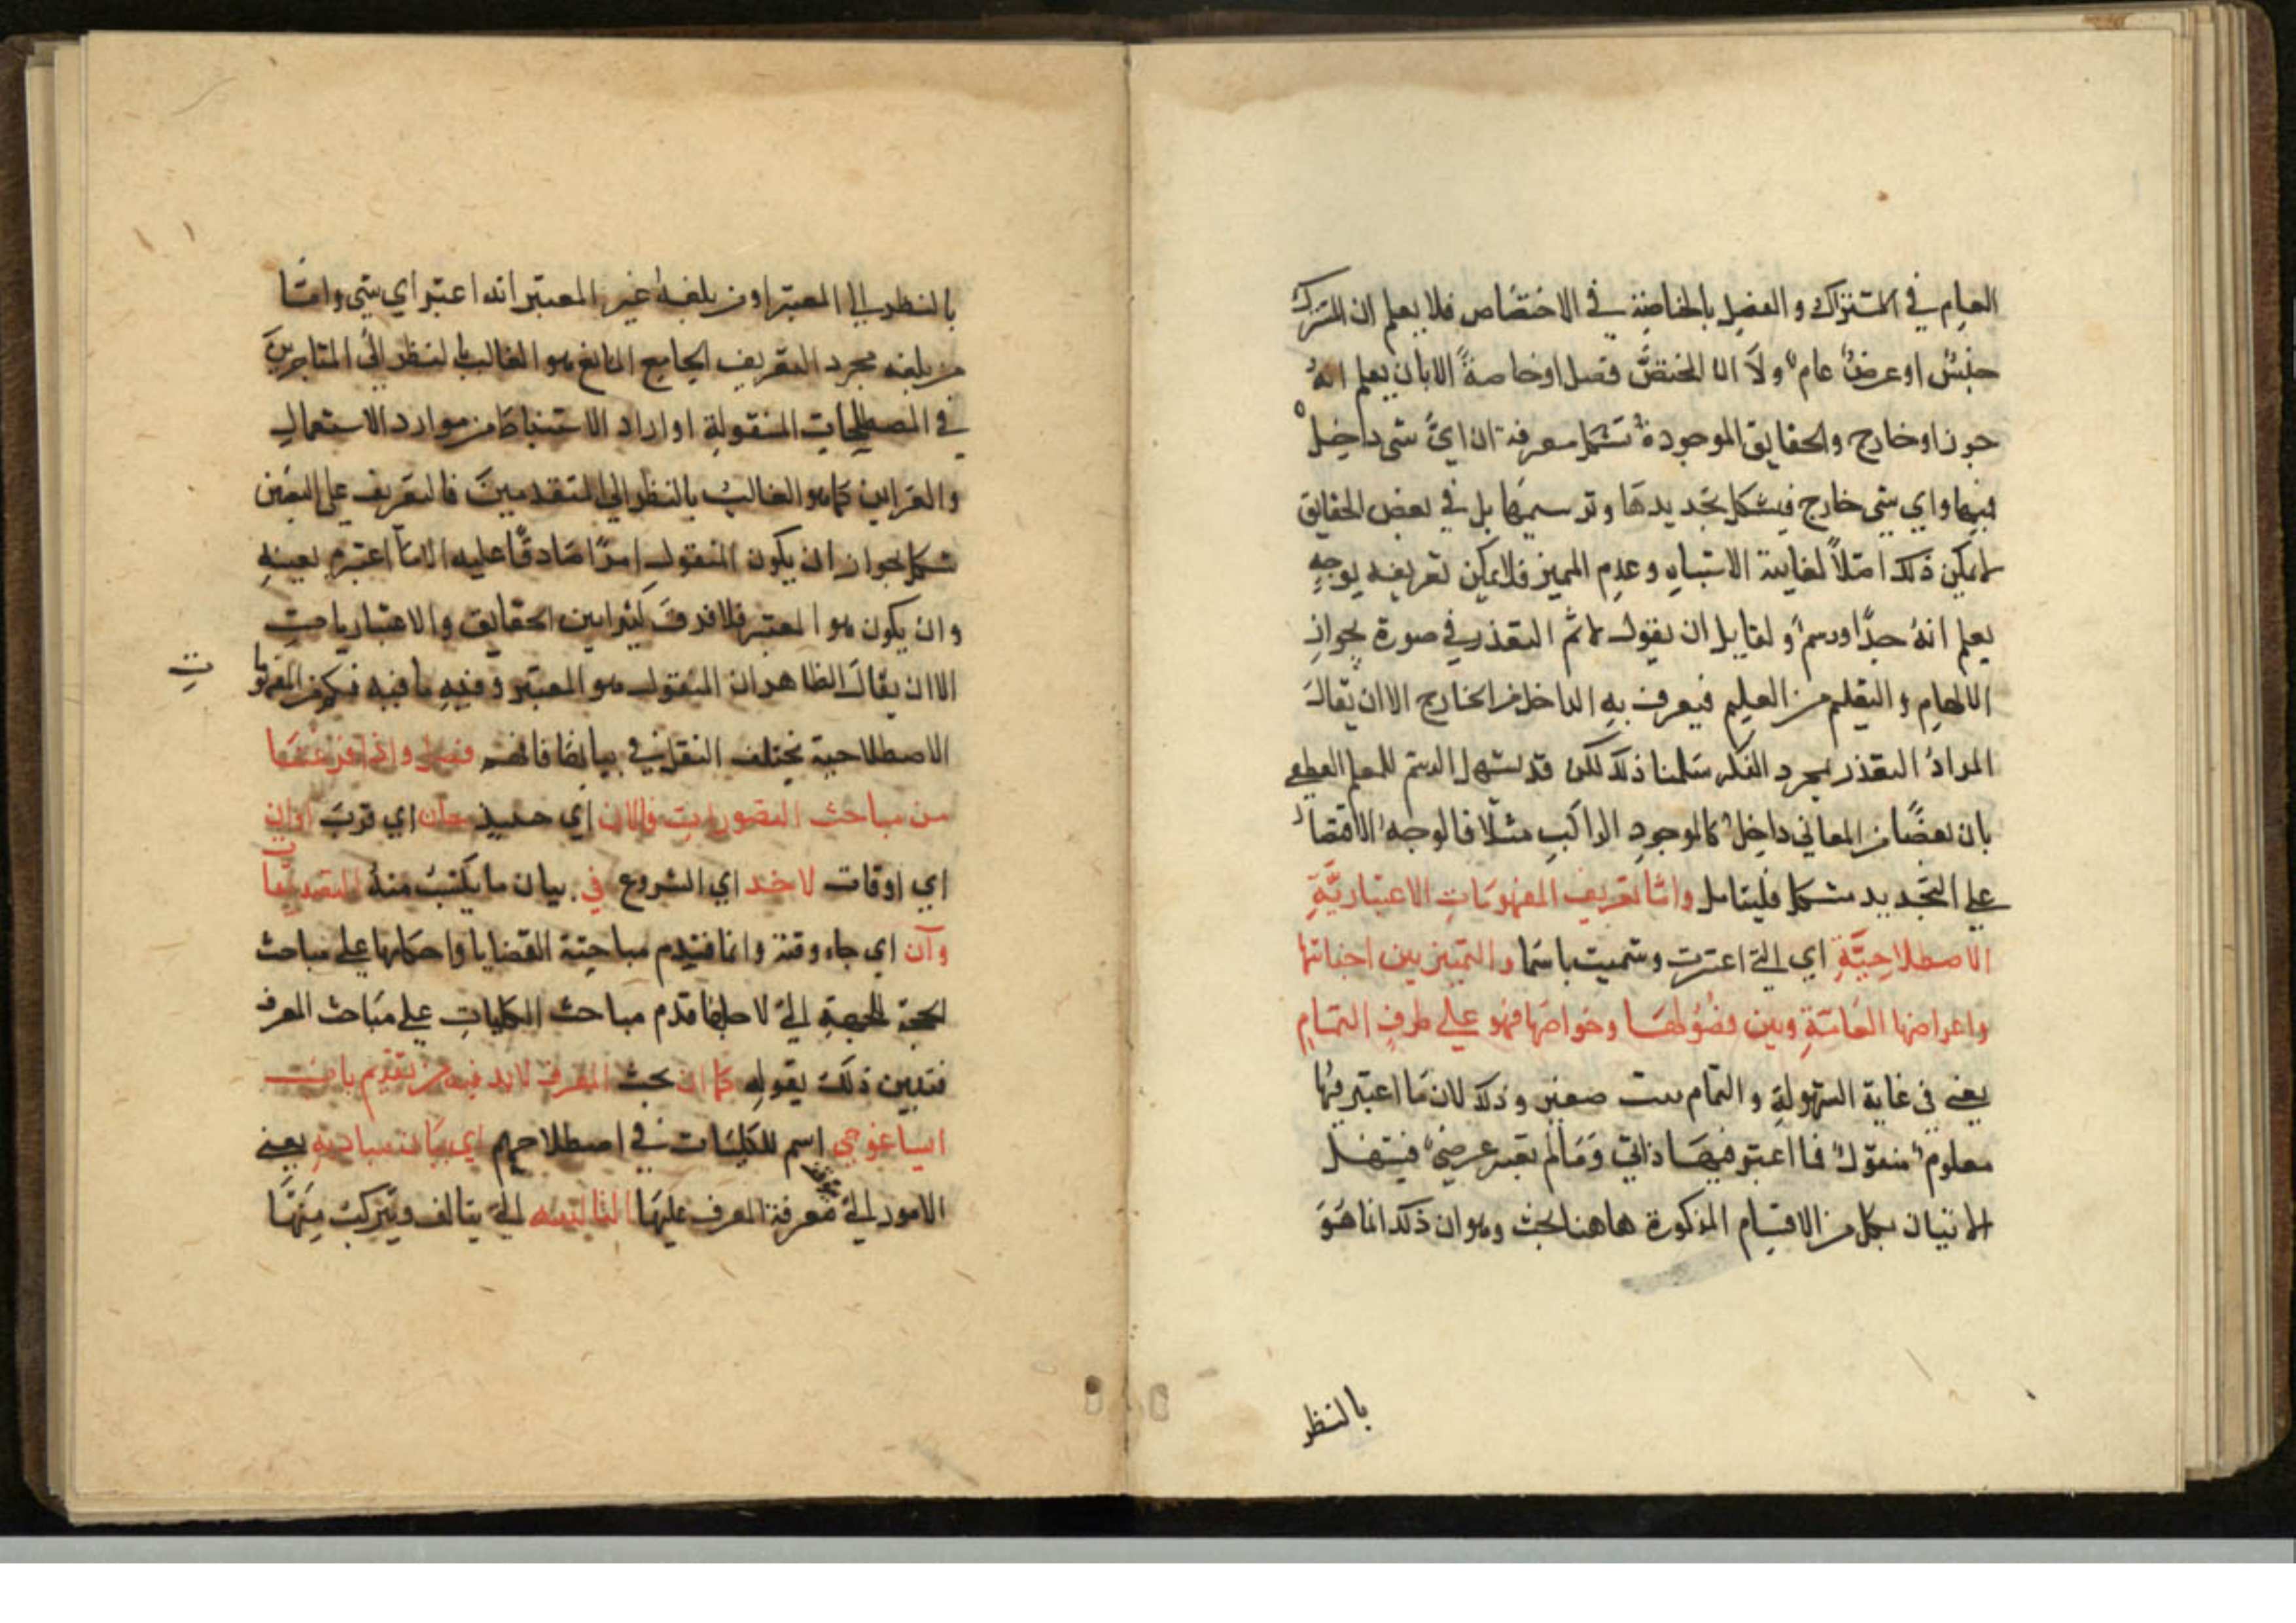 العام في الاشتراك والفصل بالخاصة في الاختصاص فلا يعلم ان المشترك
جنس او عرض عام ولا ان المختص فصل او خاصة الا بان يعلم انه
جوز او خارج والحقايق الموجودة تشكل معرفة ان اي شى داخل
فيها واي شى خارج فيشكل تحديدها وترسيمها بل في بعض الحقايق
لا يمكن ذلك اصلا لغاية الاشتباه وعدم المميز فلا يمكن تعريفه بوجه
يعلم انه حدا ورسم ولقايل ان يقول لا ثم التعذر في صورة بجواز
الالهام والتعلم من العلم فيعرف به الداخل من الخارج الا ان يقال
المراد التعذر بمجرد الفكر سلمنا ذلك لكن قد يسهل الرسم للعلم القطعي
بان بعضا من المعاني داخل كالموجود الراكب مثلا فالوجه الاقتصار
على التحديد مشكل فليتامل واما تعريف المفهومات الاعتبارية
الاصطلاحية اي التي اعتبرت وسميت باسما والتميز بين اجناسها
واعراضها العامة وبين فصولها وخواصها فهو على طرف التمام
يعني في غاية السهولة والتمام بيت صغير وذلك لان ما اعتبر فيها
معلوم منقول فما اعتبر فيها ذاتي وما لم يعتبر عرضي فيسهل
الاتيان بكل من الاقسام المذكورة هاهنا بحث وهو ان ذلك انما هو
بالنظر
بالنظر الى المعتبر او من بلغه غير المعتبر انه اعتبر اي شى واما
من بلغه مجرد التعريف الجامع المانع هو الغالب بالنظر الى المتاخرين
في المصطلحات المنقولة او اراد الاستنباط من موارد الاستعمال
والقراين كما هو الغالب بالنظر الى المتقدمين فالتعريف على اليقين
شكل لجواز ان يكون المنقول امرا صادقا عليه الا ما اعتبر بعينه
وان يكون هو المعتبر فلا فرق كثيرا بين الحقايق والاعتبارياحت
الا ان يقال الظاهر ان المنقول هو المعتبر وفيه ما فيه فكم من المفهوما
ت
الاصطلاحية يختلف النقل في بيانها فافهم فصل واذا فرغنا
من مباحث التصورات والان اي حينيذ حان اي قرب اوان
اي اوقات لاخذ اي الشروع في بيان ما يكتب منه التصديقا
ت
وآن اي جاء وقته وانما فتقدم مباحثة القضايا واحكامها على مباحث
الحجة للجهة التي لاجلها قدم مباحث الكليات على مباحث المعرف
فتبين ذلك بقوله كما ان بحث المعرف لابد فيه من تقديم باب
ايساغوجي اسم للكليات في اصطلاحهم اي بيان مباديه يعني
الامور التي معرفة المعرف عليها التاليفيه التي يتالف ويتركب منها